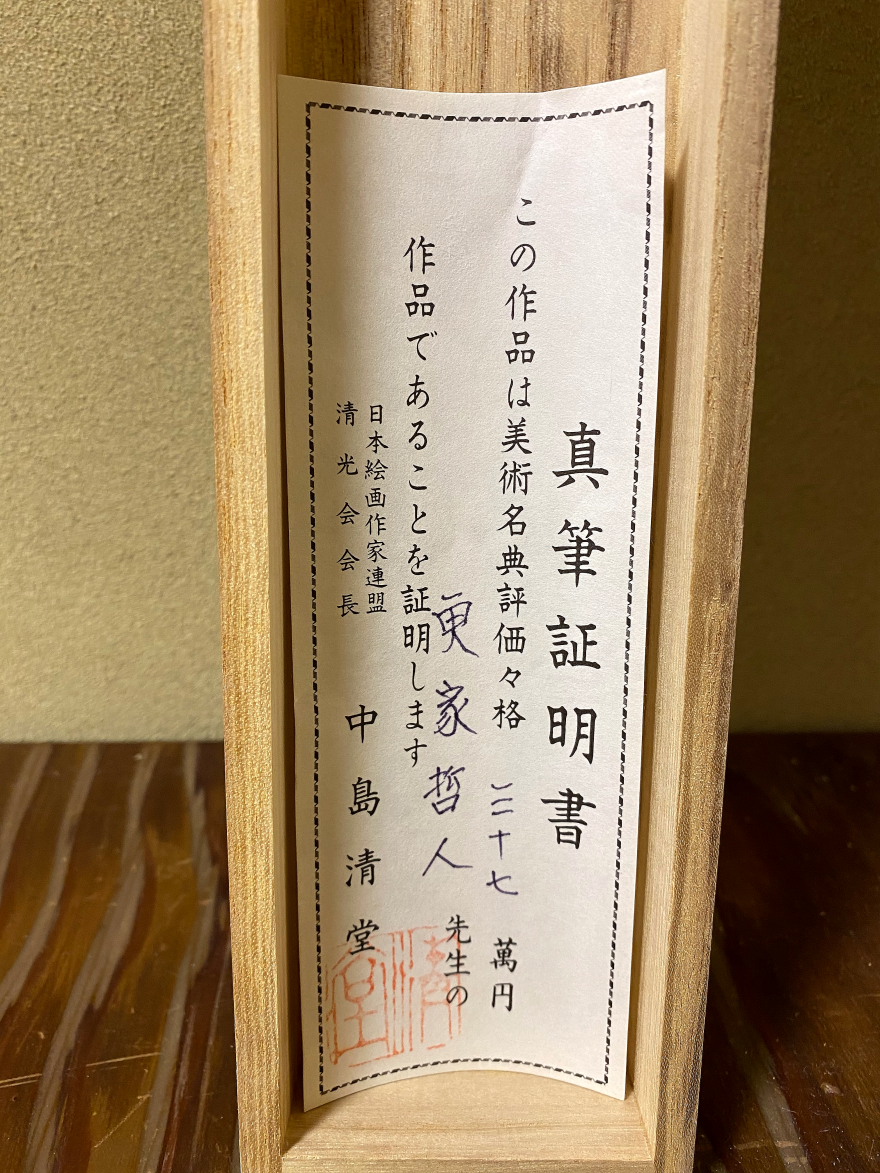 真筆証明書
この作品は美術名典評価々格 三十七 萬円
更家哲人 先生の
作品であることを証明します
日本絵画作家連盟
清光会会長
中島清堂
清堂